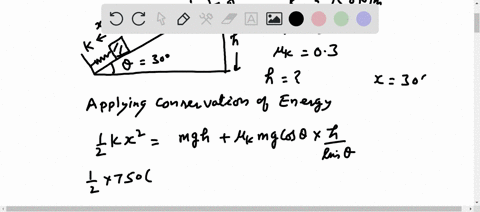 x
K
θ = 30°
h
μK = 0.3
h = ?
x = 30
Applying Conservation of Energy
1/2 K x² = mgh + μK mg Cosθ × h/Sinθ
1/2 × 750(